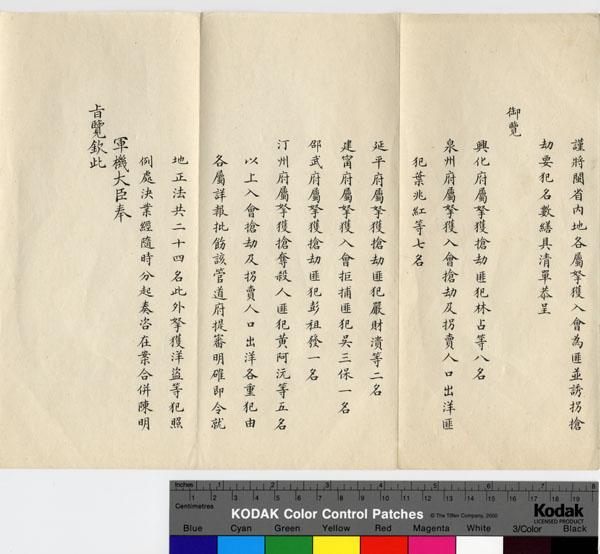 謹將閩省內地各屬拏獲入會為匪並誘拐搶
刼要犯名數繕具清單恭呈
御覽
興化府屬拏獲搶刼匪犯林占等八名
泉州府屬拏獲入會搶刼及拐賣人口出洋匪
犯葉兆紅等七名
延平府屬拏獲搶刼匪犯嚴財潰等二名
建甯府屬拏獲入會拒捕匪犯吳三保一名
邵武府屬拏獲搶刼匪犯彭祖發一名
汀州府屬拏獲搶奪殺人匪犯黃阿沅等五名
以上入會搶刼及拐賣人口出洋各重犯由
各屬詳報批飭該管道府提審明確即令就
地正法共二十四名此外拏獲洋盜等犯照
例處決業經隨時分起奏咨在業合併陳明
軍機大臣奉
旨覽欽此
Inches 1 2 3 4 5 6 7 8
Centimetres 1 2 3 4 5 6 7 8 9 10 11 12 13 14 15 16 17 18 19
KODAK Color Control Patches
© The Tiffen Company, 2000
Kodak
LICENSED PRODUCT
Blue Cyan Green Yellow Red Magenta White 3/Color Black